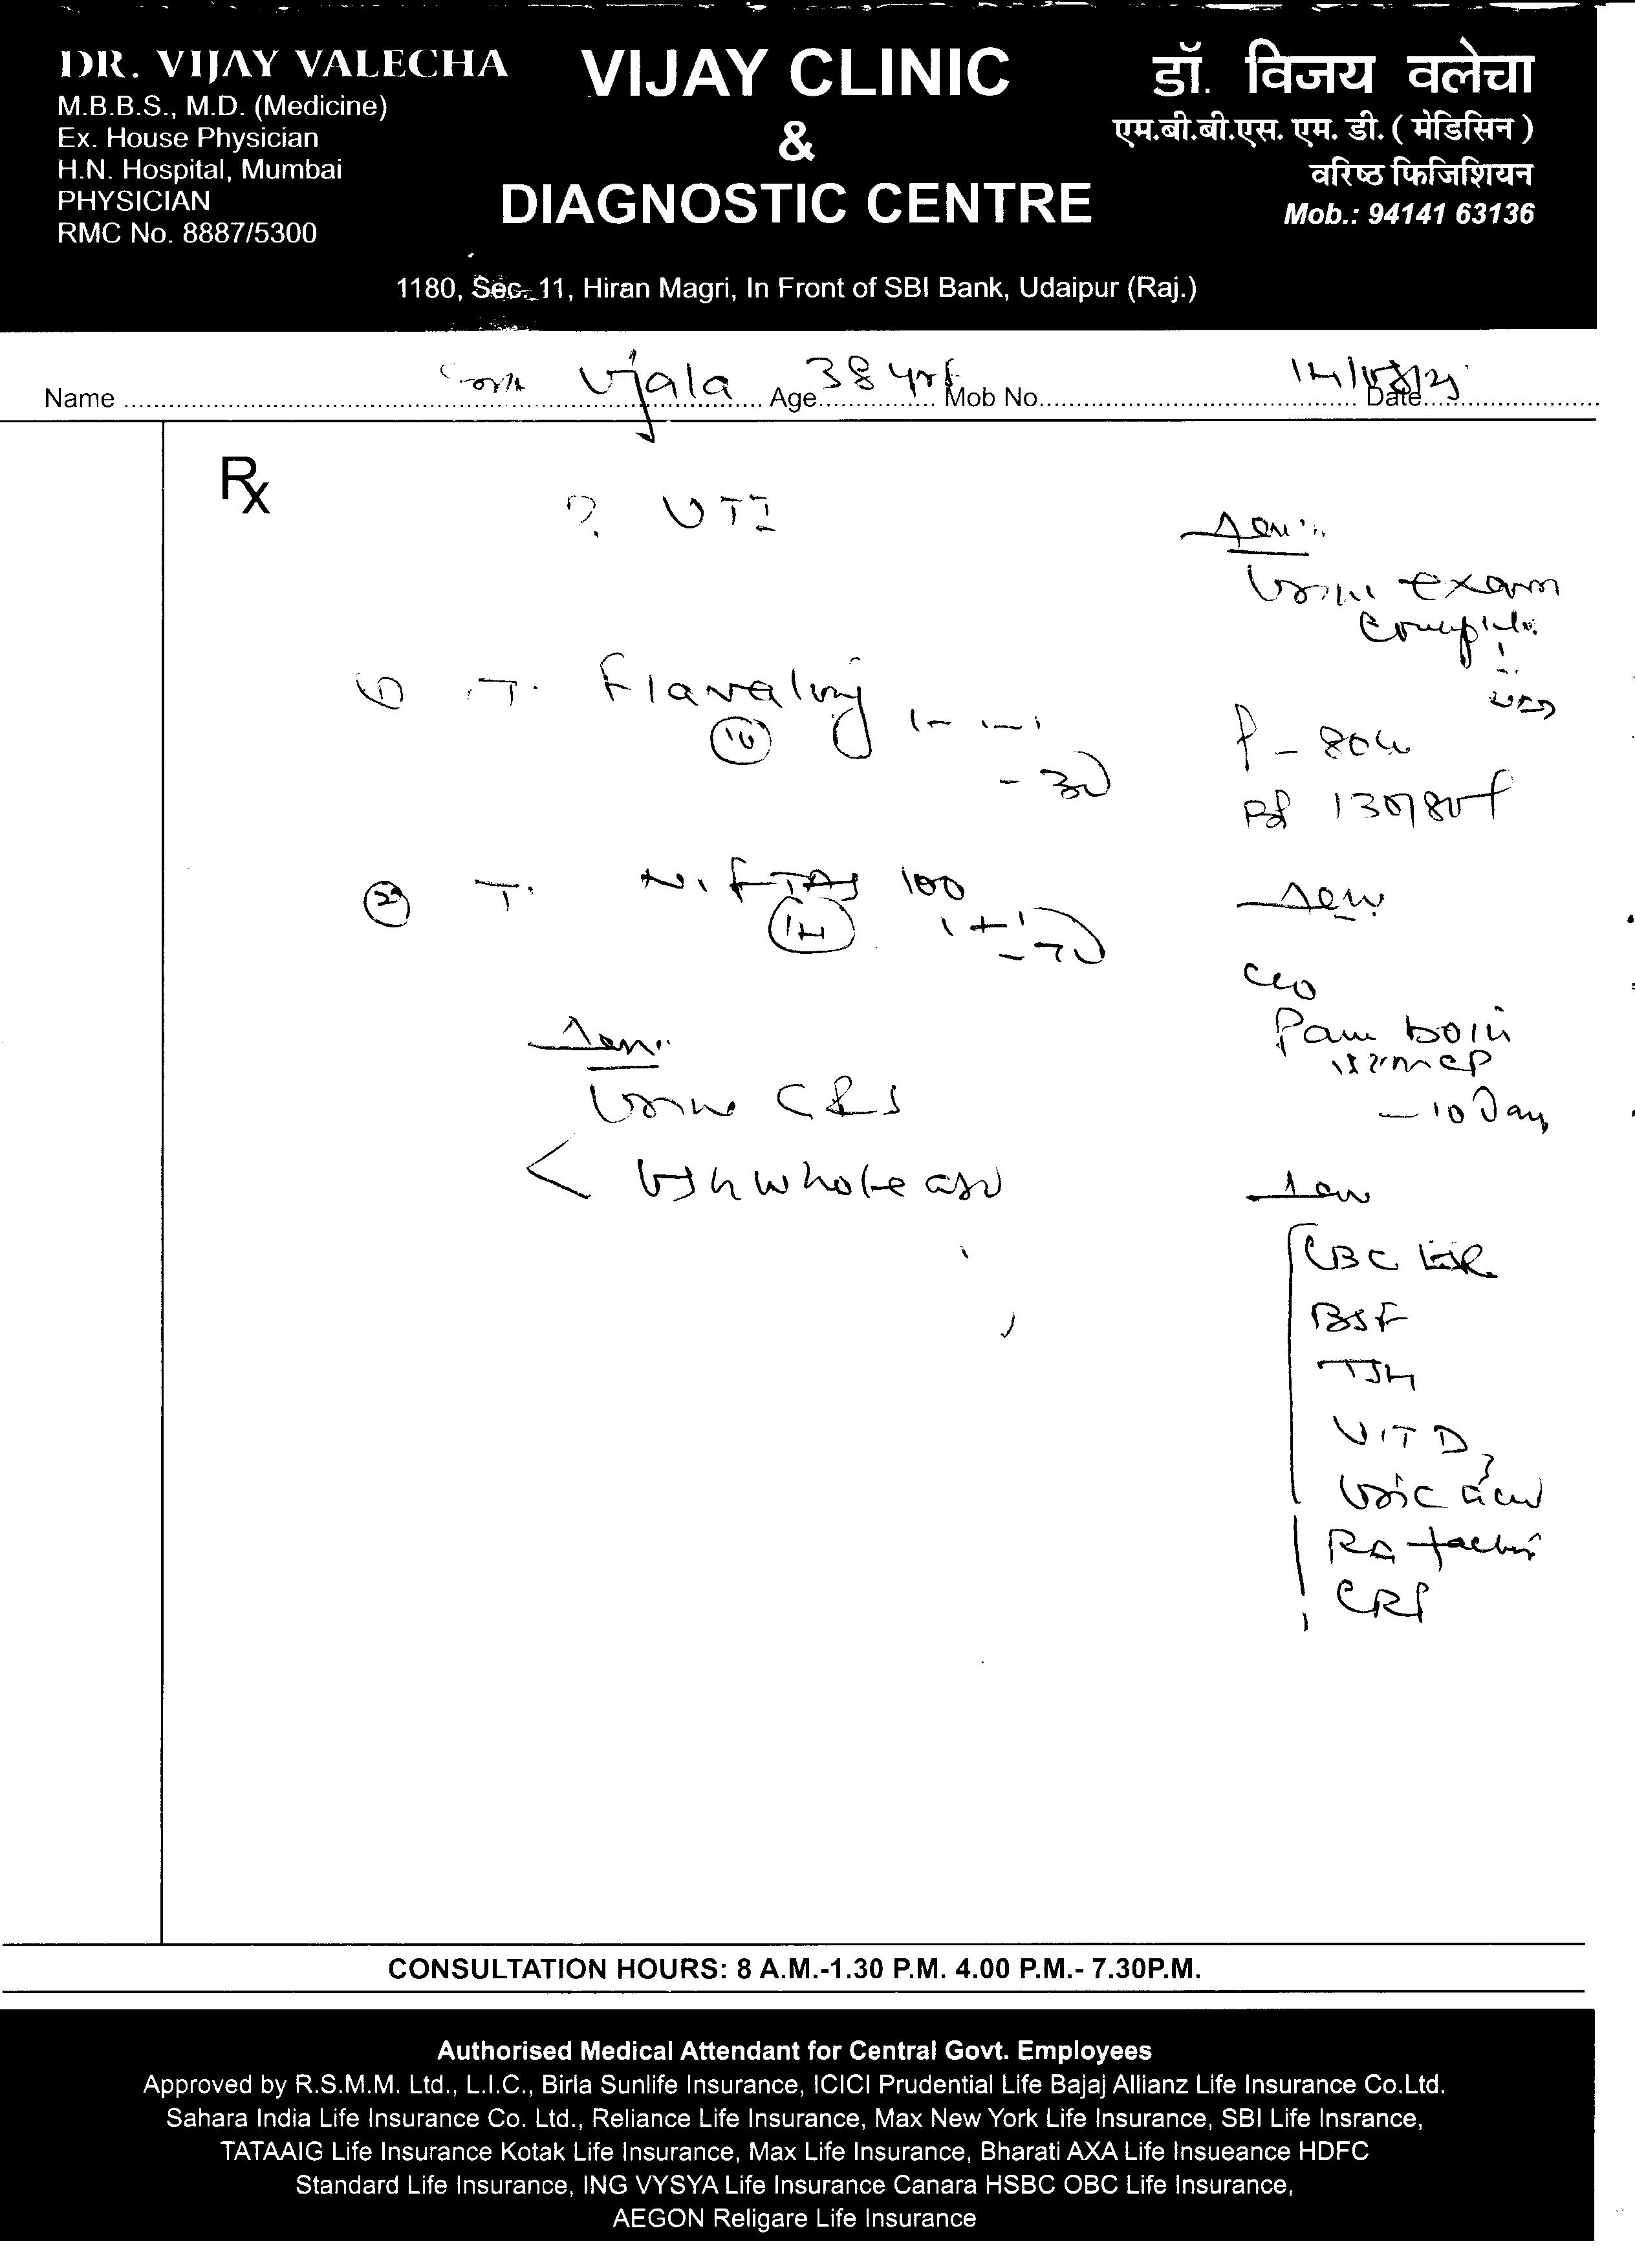 DR. VIJAY VALECHA
M.B.B.S., M.D. (Medicine)
Ex. House Physician
H.N. Hospital, Mumbai
PHYSICIAN
RMC No. 8887/5300
VIJAY CLINIC
&
DIAGNOSTIC CENTRE
डॉ. विजय वलेचा
एम.बी.बी.एस. एम. डी. ( मेडिसिन )
वरिष्ठ फिजिशियन
Mob.: 94141 63136
1180, Sec. 11, Hiran Magri, In Front of SBI Bank, Udaipur (Raj.)
Name Ujala Age 38 yrs Mob No. Date
Rx
? UTI
Urine exam
complete
① T.
P - 80
BP 130/80
② T. NIFTAS 100
14
1+1
c/o
Pain both
- 10 Day
Urine C&S
USG whole abd
CBC ESR
BSF
TSH
VIT D3
Uric acid
RA factor
CRP
CONSULTATION HOURS: 8 A.M.-1.30 P.M. 4.00 P.M.- 7.30P.M.
Authorised Medical Attendant for Central Govt. Employees
Approved by R.S.M.M. Ltd., L.I.C., Birla Sunlife Insurance, ICICI Prudential Life Bajaj Allianz Life Insurance Co.Ltd.
Sahara India Life Insurance Co. Ltd., Reliance Life Insurance, Max New York Life Insurance, SBI Life Insrance,
TATAAIG Life Insurance Kotak Life Insurance, Max Life Insurance, Bharati AXA Life Insueance HDFC
Standard Life Insurance, ING VYSYA Life Insurance Canara HSBC OBC Life Insurance,
AEGON Religare Life Insurance